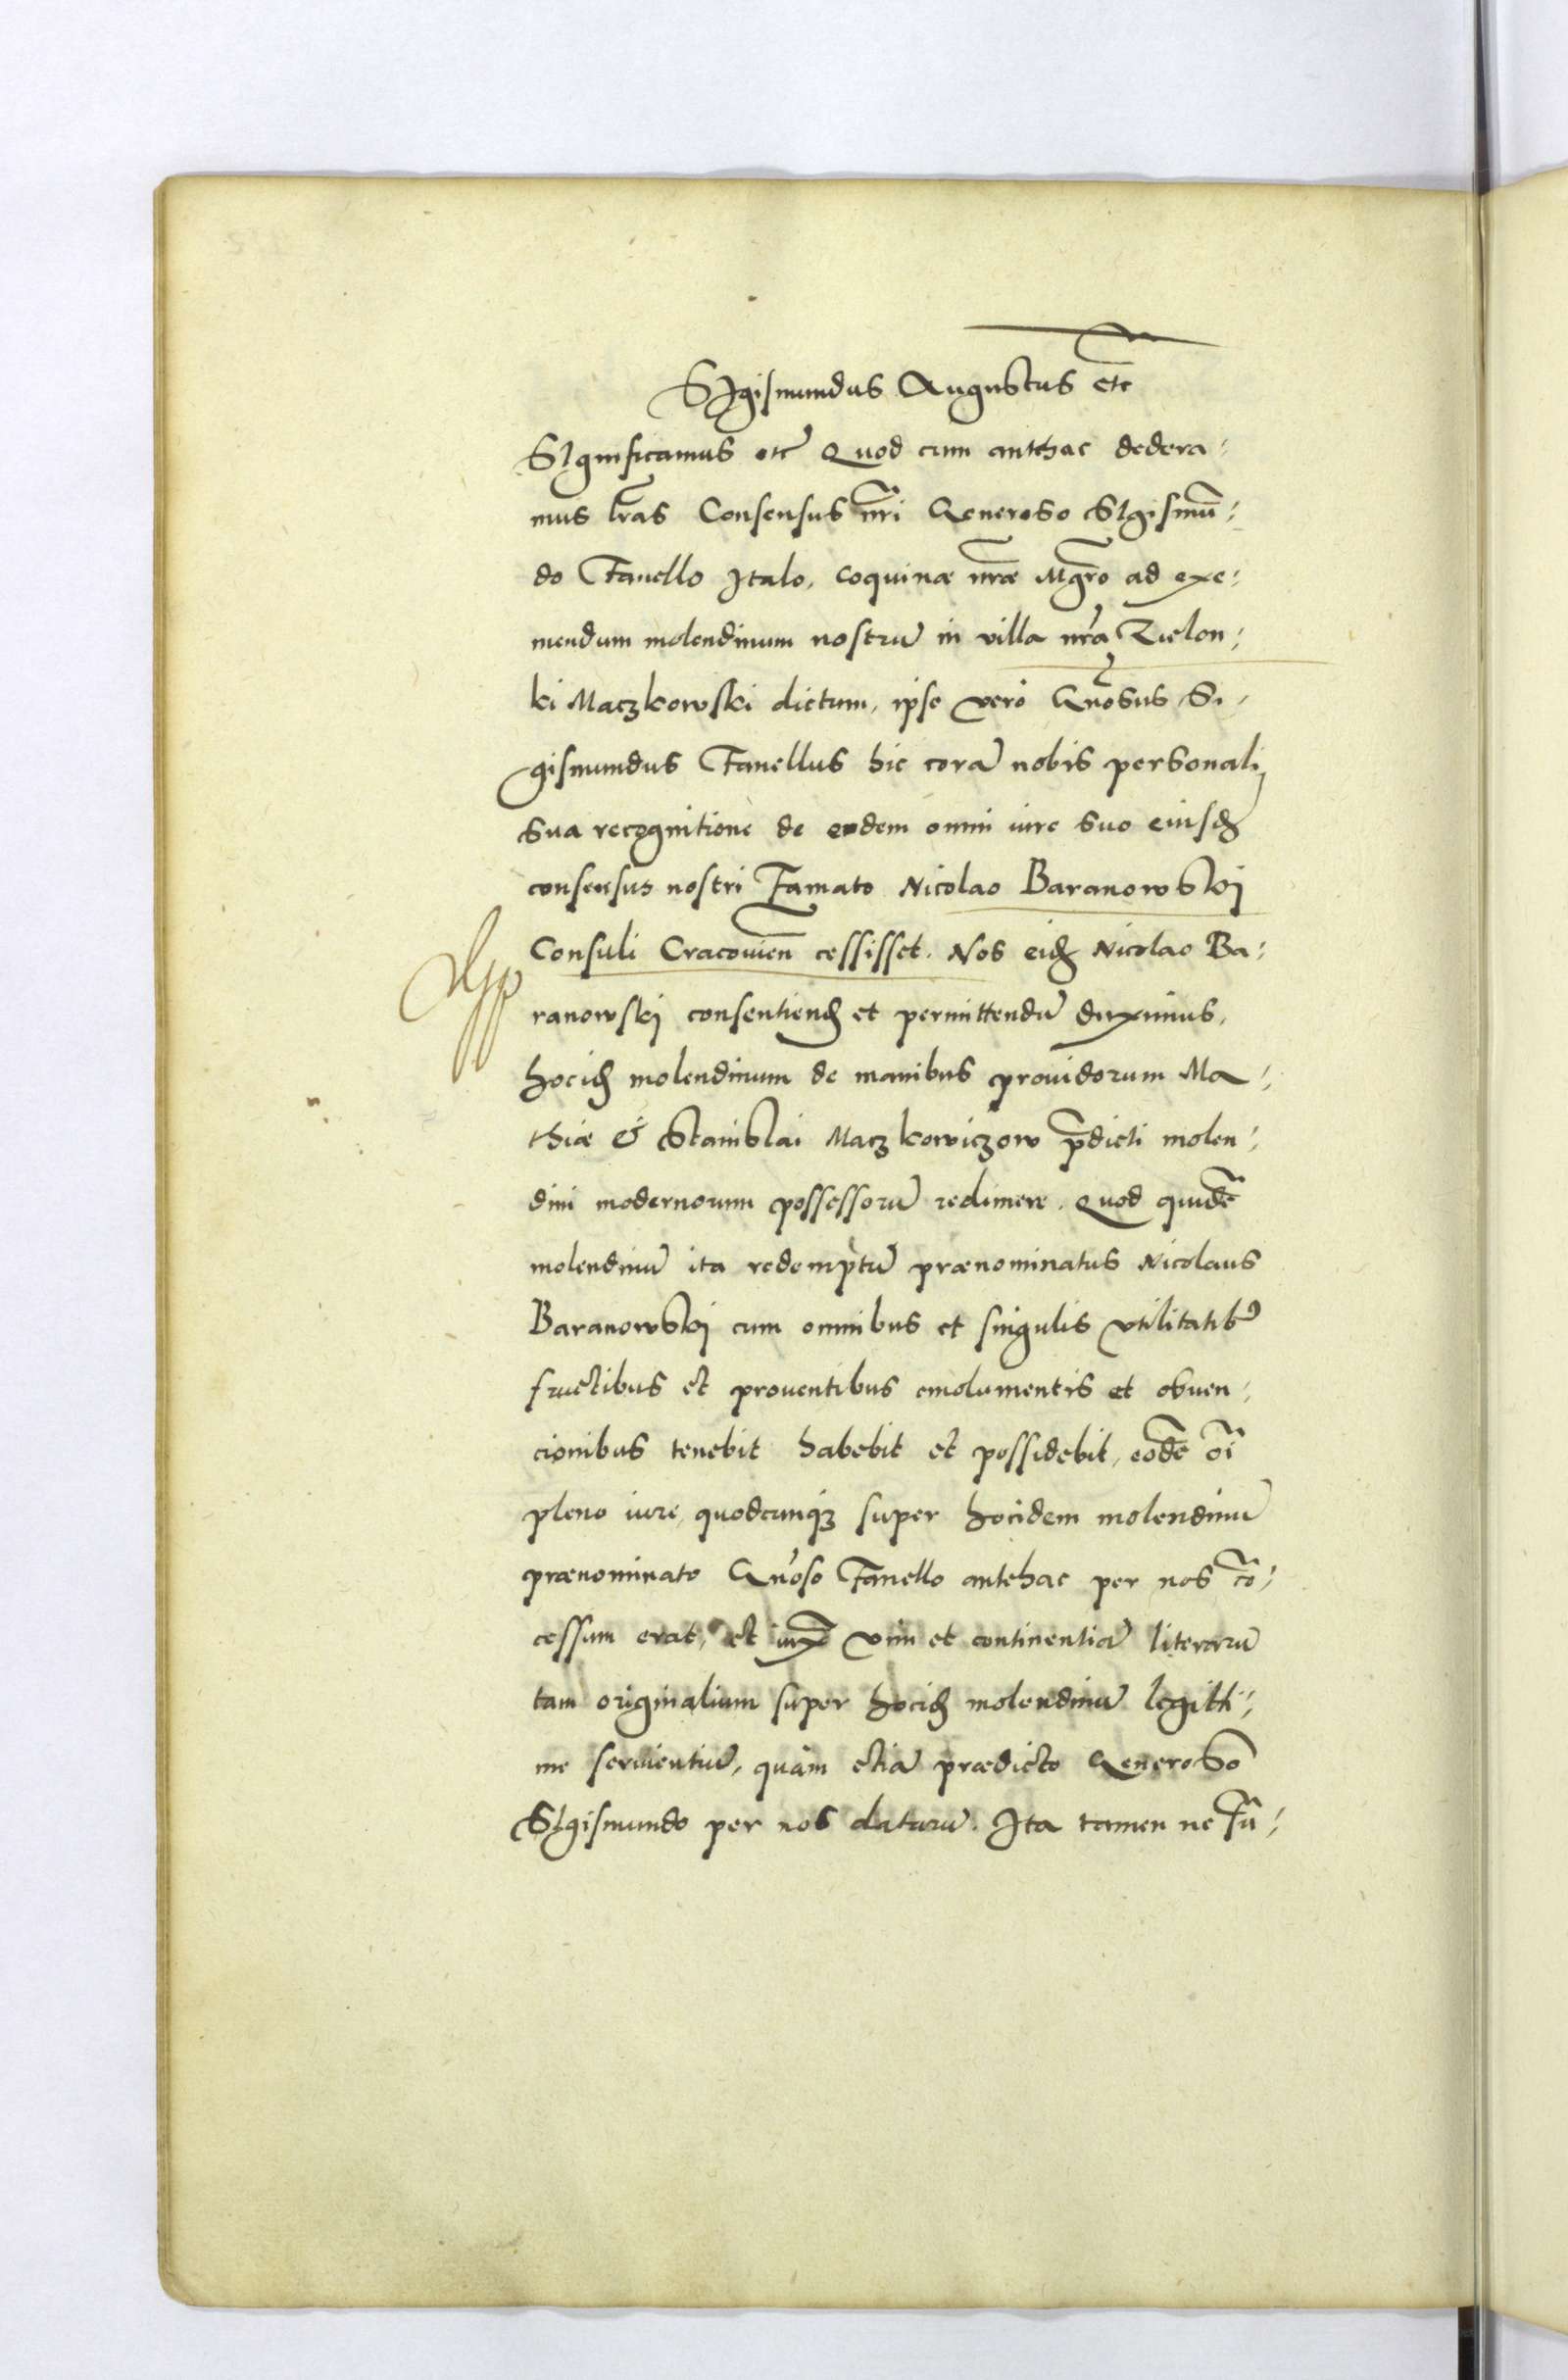 SIgismundus Augustus etc
SIgnificamus etc Quod cum anthac dedera⸗
mus lras̃ Consensus nr̃i Generoso SIgismũ⸗
do Fanello Italo, coquinæ nr̃æ Mgr̃o ad exe⸗
mendum molendinum nostrũ in villa nr̃a Zielon⸗
ki Maczkowski dictum, ipse vero Gn̄osus Si⸗
gismundus Fanellus hic corã nobis personali
sua recognitione de eodem omni iure suo eiusdꝫ
consensus nostri Famato Nicolao Baranowskij
Consuli Cracovieñ cessisset. Nos eidꝫ Nicolao Ba⸗
ranowskij consentiendꝫ et permittendũ duximus,
hocidꝫ molendinum de manibus providorum Ma⸗
thiæ & Stanislai Maczkowiczow p̃dicti molen⸗
dini modernorum possessorũ redimere. Quod quidẽ
molendinũ ita redemptũ prænominatus Nicolaus
Baranowskij cum omnibus et singulis vtilitatibꝰ
fructibus et prouentibus emolumentis et obuen⸗
cionibus tenebit habebit et possidebit, eodẽ oĩ
pleno iure, quodcunqꝫ super hocidem molendinũ
prænominato Gn̄oso Fanello antehac per nos cõ⸗
cessum erat, et iuxᵃ vim et continentiã literarũ
tam originalium super hocidꝫ molendinũ legitti⸗
me seruientiũ, quàm etiã prædicto Generoso
SIgismundo per nos datarũ. Ita tamen ne fũ⸗